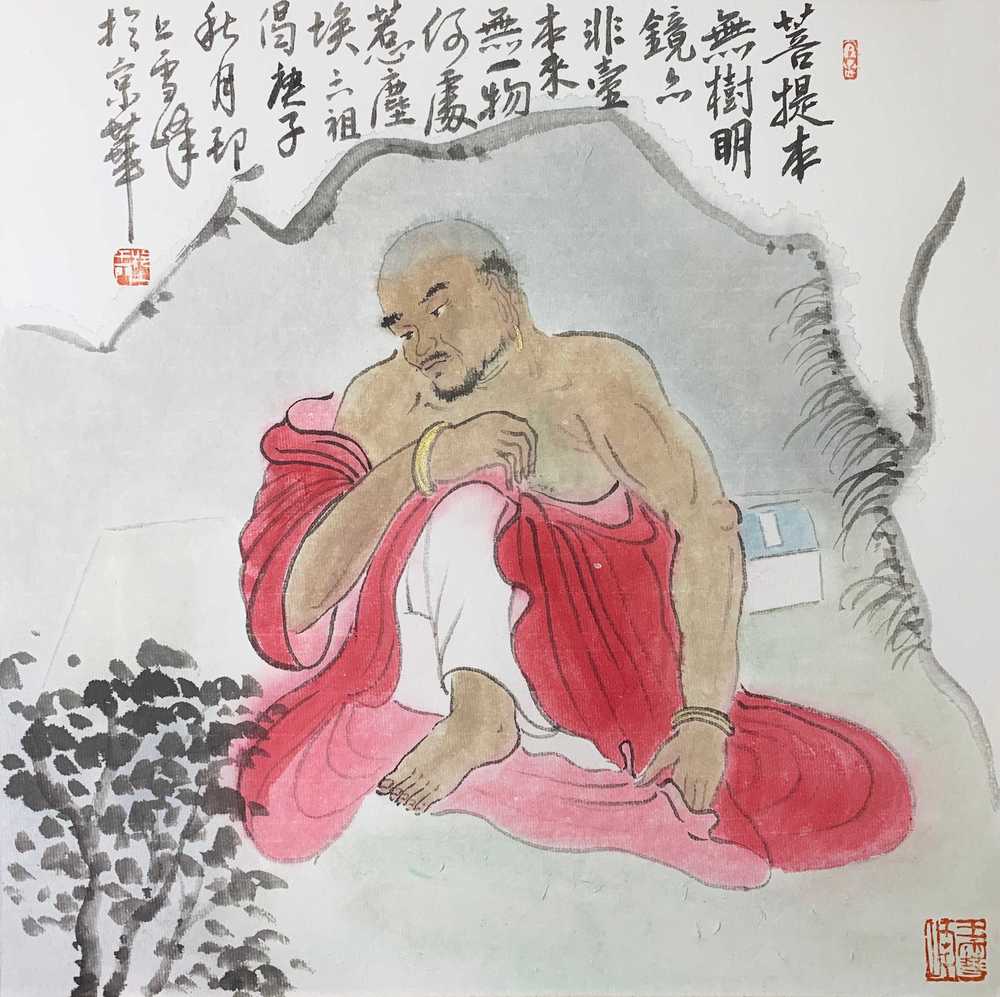 菩提本
無樹明
鏡亦
非臺
本來
無一物
何處
惹塵
埃六祖
偈庚子
秋月
雪峰
於京華